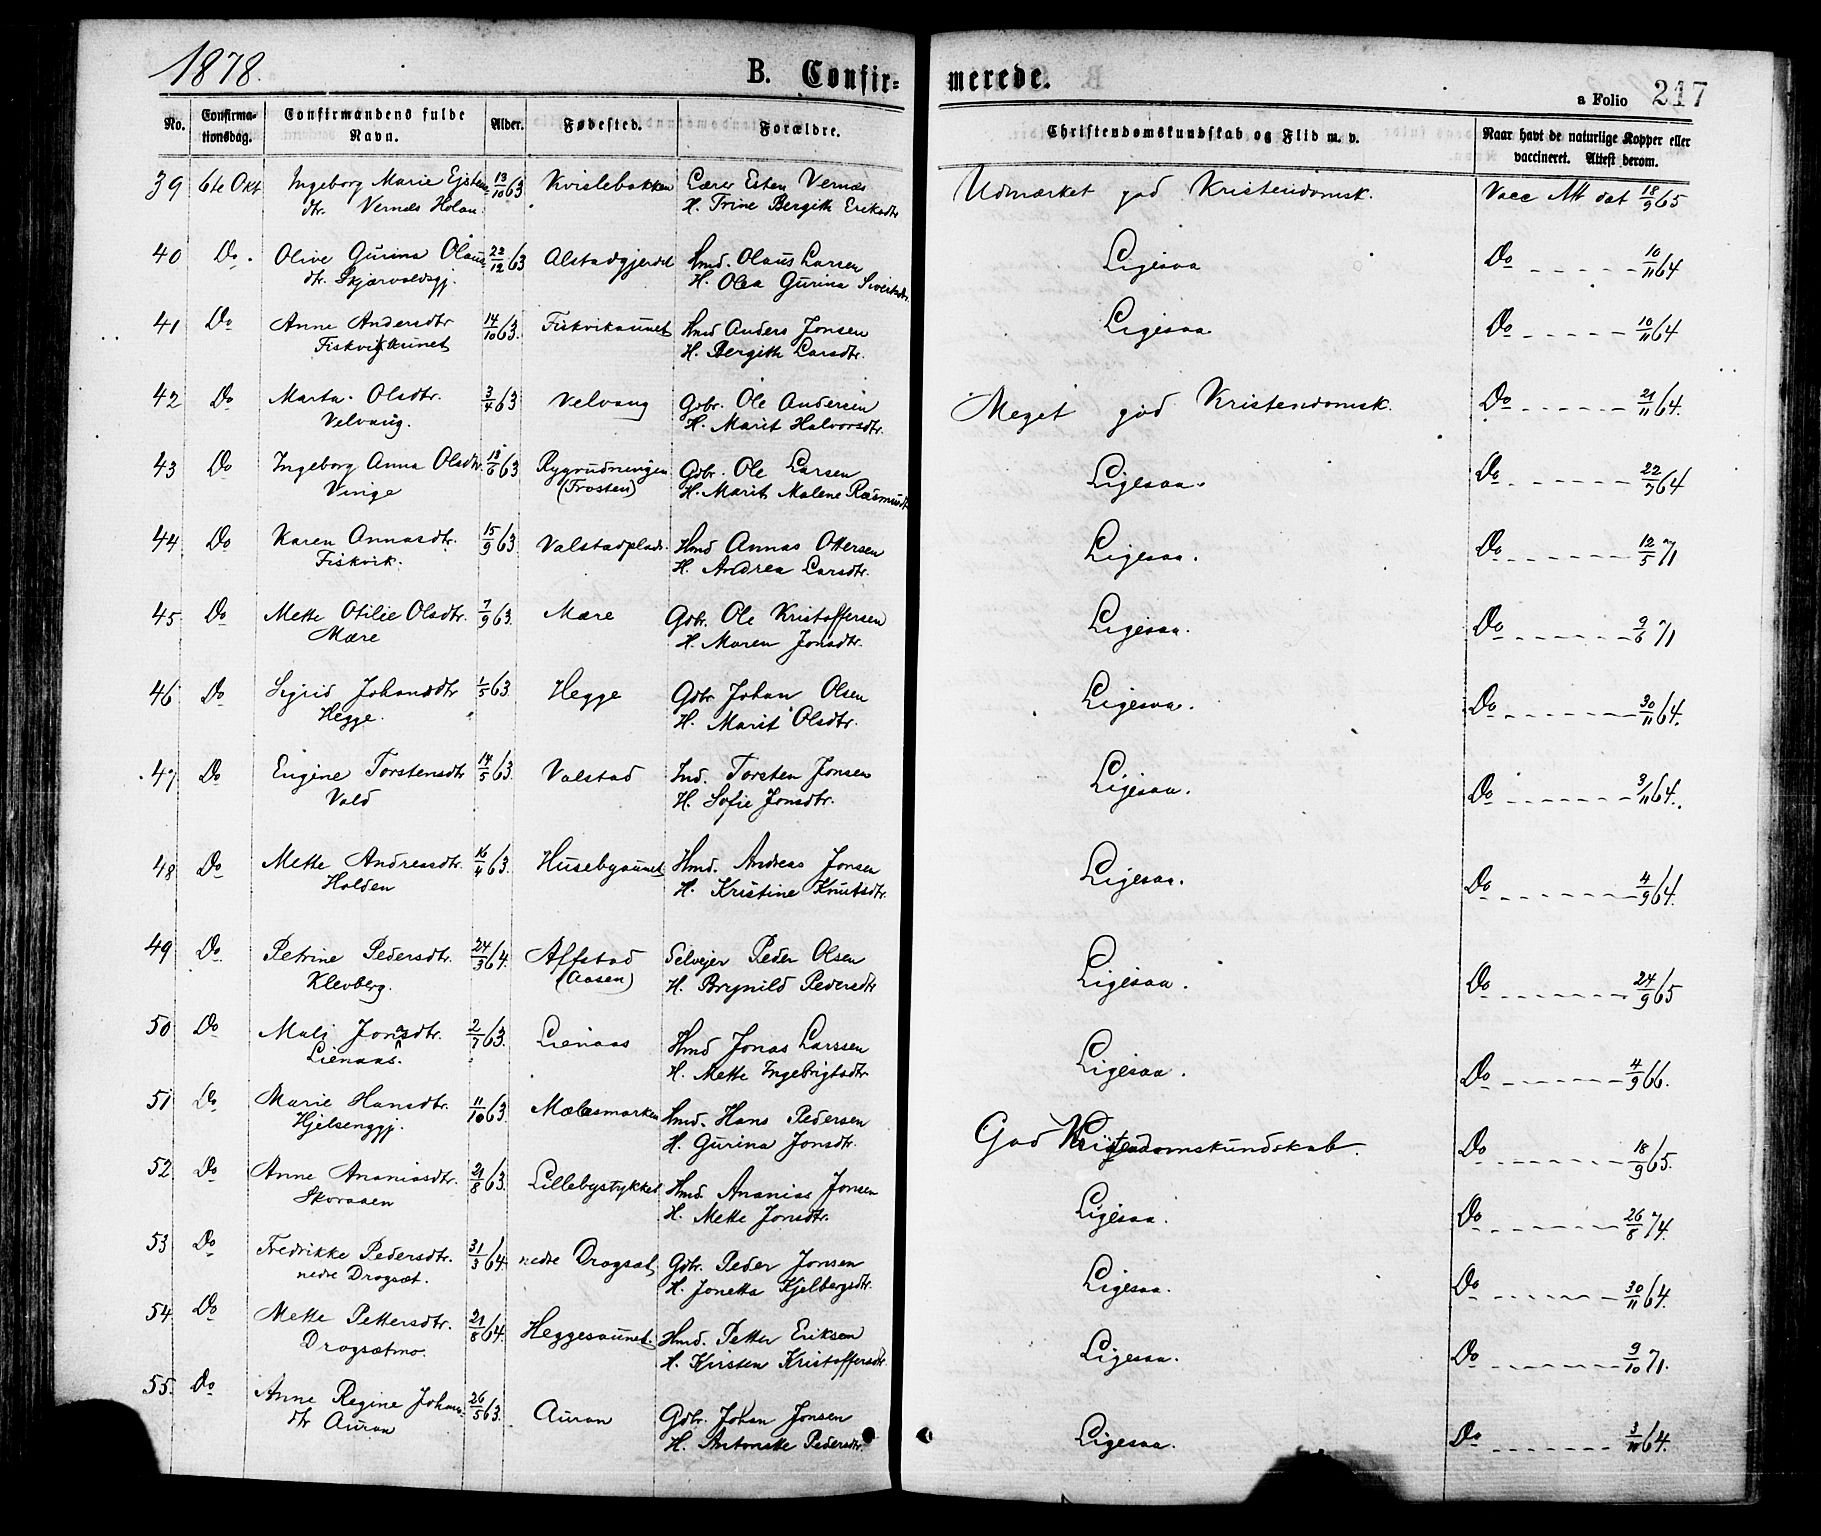 1878.
B. Confir-
merede.
a Folio 217
No.
Confirma-
tionsdag.
Confirmandens fulde
Navn.
Alder.
Fødested.
Forældre.
Christendomskundskab og Flid m. v.
Naar havt de naturlige Kopper eller
vaccineret. Attest derom.
39 6te Okt Ingeborg Marie Ejstens- 13/10 63 Kvislebakken Lærer Esten Vernæs Udmærket god Kristendomsk. Vacc Att dat 18/9 65
dtr. Vernæs Holan. H. Trine Bergith Eriksdtr
40 Do. Olive Gurina Olaus- 22/12 63 Alstadgjerdet Hmd. Olaus Larsen Ligesaa Do 10/11 64
dtr. Skjærvoldsgj. H. Olea Gurina Sivertsdtr.
41 Do Anne Andersdtr 14/10 63. Fiskvikaunet Hmd Anders Jonsen Ligesaa Do 10/11 64
Fiskvikaunet H. Bergith Larsdtr.
42 Do Marta Olsdtr. 3/4 63 Velvang Gbr. Ole Andersen Meget god Kristendomsk. Do 21/11 64.
Velvang. H. Marit Halvorsdtr.
43 Do Ingeborg Anna Olsdtr. 18/6 63 Rygrudningen Gdbr. Ole Larsen Ligesaa. Do 22/7 64
Vinge (Frosten) H. Marit Malene Rasmusdtr
44 Do Karen Annasdtr. 15/9 63 Valstadplads. Hmd Annas Ottersen Ligesaa. Do 12/5 71
Fiskvik. H. Andrea Larsdtr.
45 Do Mette Otilie Olsdtr. 7/9 63. Mære Gdbr. Ole Kristoffersen Ligesaa. Do 9/6 71
Mære H. Maren Jonsdtr.
46 Do Sigrid Johansdtr 1/5 63. Hegge Gdbr. Johan Olsen Ligesaa. Do 30/11 64.
Hegge. H. Marit Olsdtr.
47 Do Eugine Torstensdtr 14/5 63. Valstad Ind. Torsten Jonsen Ligesaa. Do 3/11 64.
Vold H. Sofie Jonsdtr.
48 Do Mette Andreasdtr. 16/4 63. Husebyaunet Hmd. Andreas Jonsen Ligesaa. Do 4/9 64.
Holden H. Kristine Knutsdtr.
49 Do Petrine Pedersdtr. 24/3 64. Affstad Selvejer Peder Olsen Ligesaa. Do 24/9 65
Klevberg. (Aasen) H. Brynild Pedersdtr
50 Do Mali Jonasdtr. 2/7 63. Lienaas Hmd Jonas Larssen Ligesaa. Do 4/9 66.
Lienaas. H. Mette Ingebrigtsdtr
51 Do Marie Hansdtr. 11/10 63. Mælesmarken Hmd. Hans Pedersen God Kristendomskundskab. Do 18/9 65.
Hjelsenggj. H. Gurina Jonsdtr.
52 Do Anne Ananiasdtr. 21/8 63. Lillebystykket Hmd. Ananias Jonsen Ligesaa. Do 26/8 74.
Skoraaen H. Mette Jonsdtr.
53 Do Fredrikke Pedersdtr. 31/3 64. nedre Dragsæt Gdbr. Peder Jonsen Ligesaa. Do 30/11 64.
nedre Dragsæt. H. Jonetta Kjelbergsdtr.
54 Do Mette Pettersdtr. 21/8 64. Heggesaunet. Hmd. Petter Eriksen Ligesaa. Do 9/10 71.
Dragsætmo. H. Kirsten Kristoffersdtr
55. Do Anne Regine Johans- 26/5 63. Auran Gdbr. Johan Jonsen Ligesaa. Do 3/10 64.
dtr Auran H. Antonette Pedersdtr